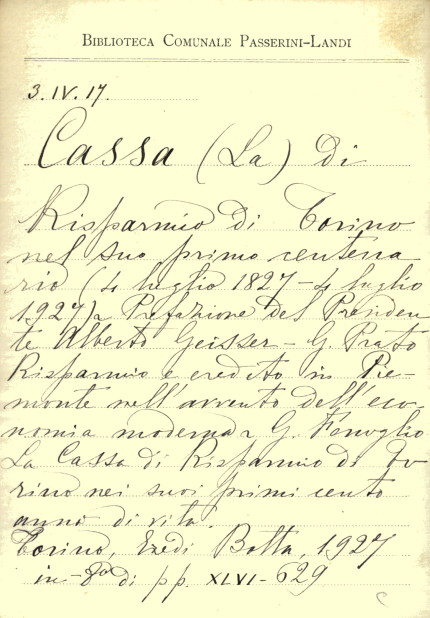 BIBLIOTECA COMUNALE PASSERINI-LANDI
3. IV. 17.
Cassa (La) di
Risparmio di Torino
nel suo primo centena
rio (4 luglio 1827 - 4 luglio
1927) Prefazione del Presiden
te Alberto Geisser - G. Prato
Risparmio e credito in Pie-
monte nell'avvento dell'eco-
nomia moderna G. Fenoglio
La Cassa di Risparmio di To
rino nei suoi primi cento
anni di vita.
Torino, Eredi Botta, 1927
in-8° di pp. XLVI-629